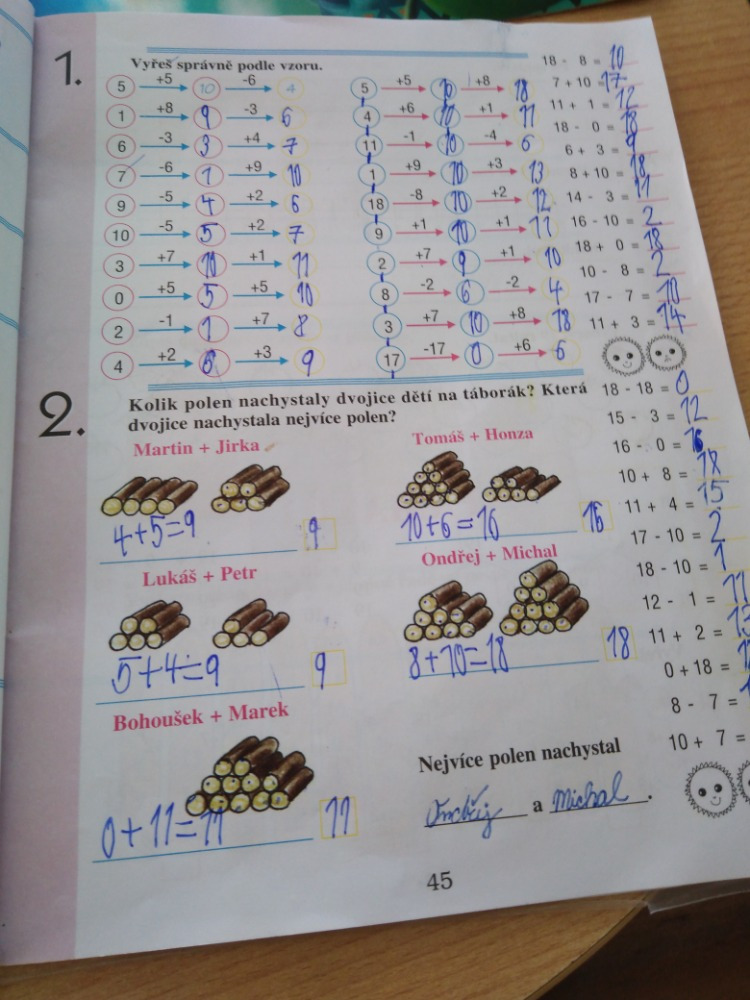 1.
Vyřeš správně podle vzoru.
5 +5 10 -6 4
1 +8 9 -3 6
6 -3 3 +4 7
7 -6 1 +9 10
9 -5 4 +2 6
10 -5 5 +2 7
3 +7 10 +1 11
0 +5 5 +5 10
2 -1 1 +7 8
4 +2 6 +3 9
5 +5 10 +8 18
4 +6 10 +1 11
11 -1 10 -4 6
1 +9 10 +3 13
18 -8 10 +2 12
9 +1 10 +1 11
2 +7 9 +1 10
8 -2 6 -2 4
3 +7 10 +8 18
17 -17 0 +6 6
18 - 8 = 10
7 + 10 = 17
11 + 1 = 12
18 - 0 = 18
6 + 3 = 9
8 + 10 = 18
14 - 3 = 11
16 - 10 = 2
18 + 0 = 18
10 - 8 = 2
17 - 7 = 10
11 + 3 = 14
2.
Kolik polen nachystaly dvojice dětí na táborák? Která
dvojice nachystala nejvíce polen?
Martin + Jirka
4+5=9 9
Tomáš + Honza
10+6=16 16
Lukáš + Petr
5+4=9 9
Ondřej + Michal
8+10=18 18
Bohoušek + Marek
0+11=11 11
Nejvíce polen nachystal
Ondřej a Michal.
18 - 18 = 0
15 - 3 = 12
16 - 0 = 16
10 + 8 = 18
11 + 4 = 15
17 - 10 = 2
18 - 10 = 1
12 - 1 = 11
11 + 2 =
0 + 18 =
8 - 7 =
10 + 7 =
45